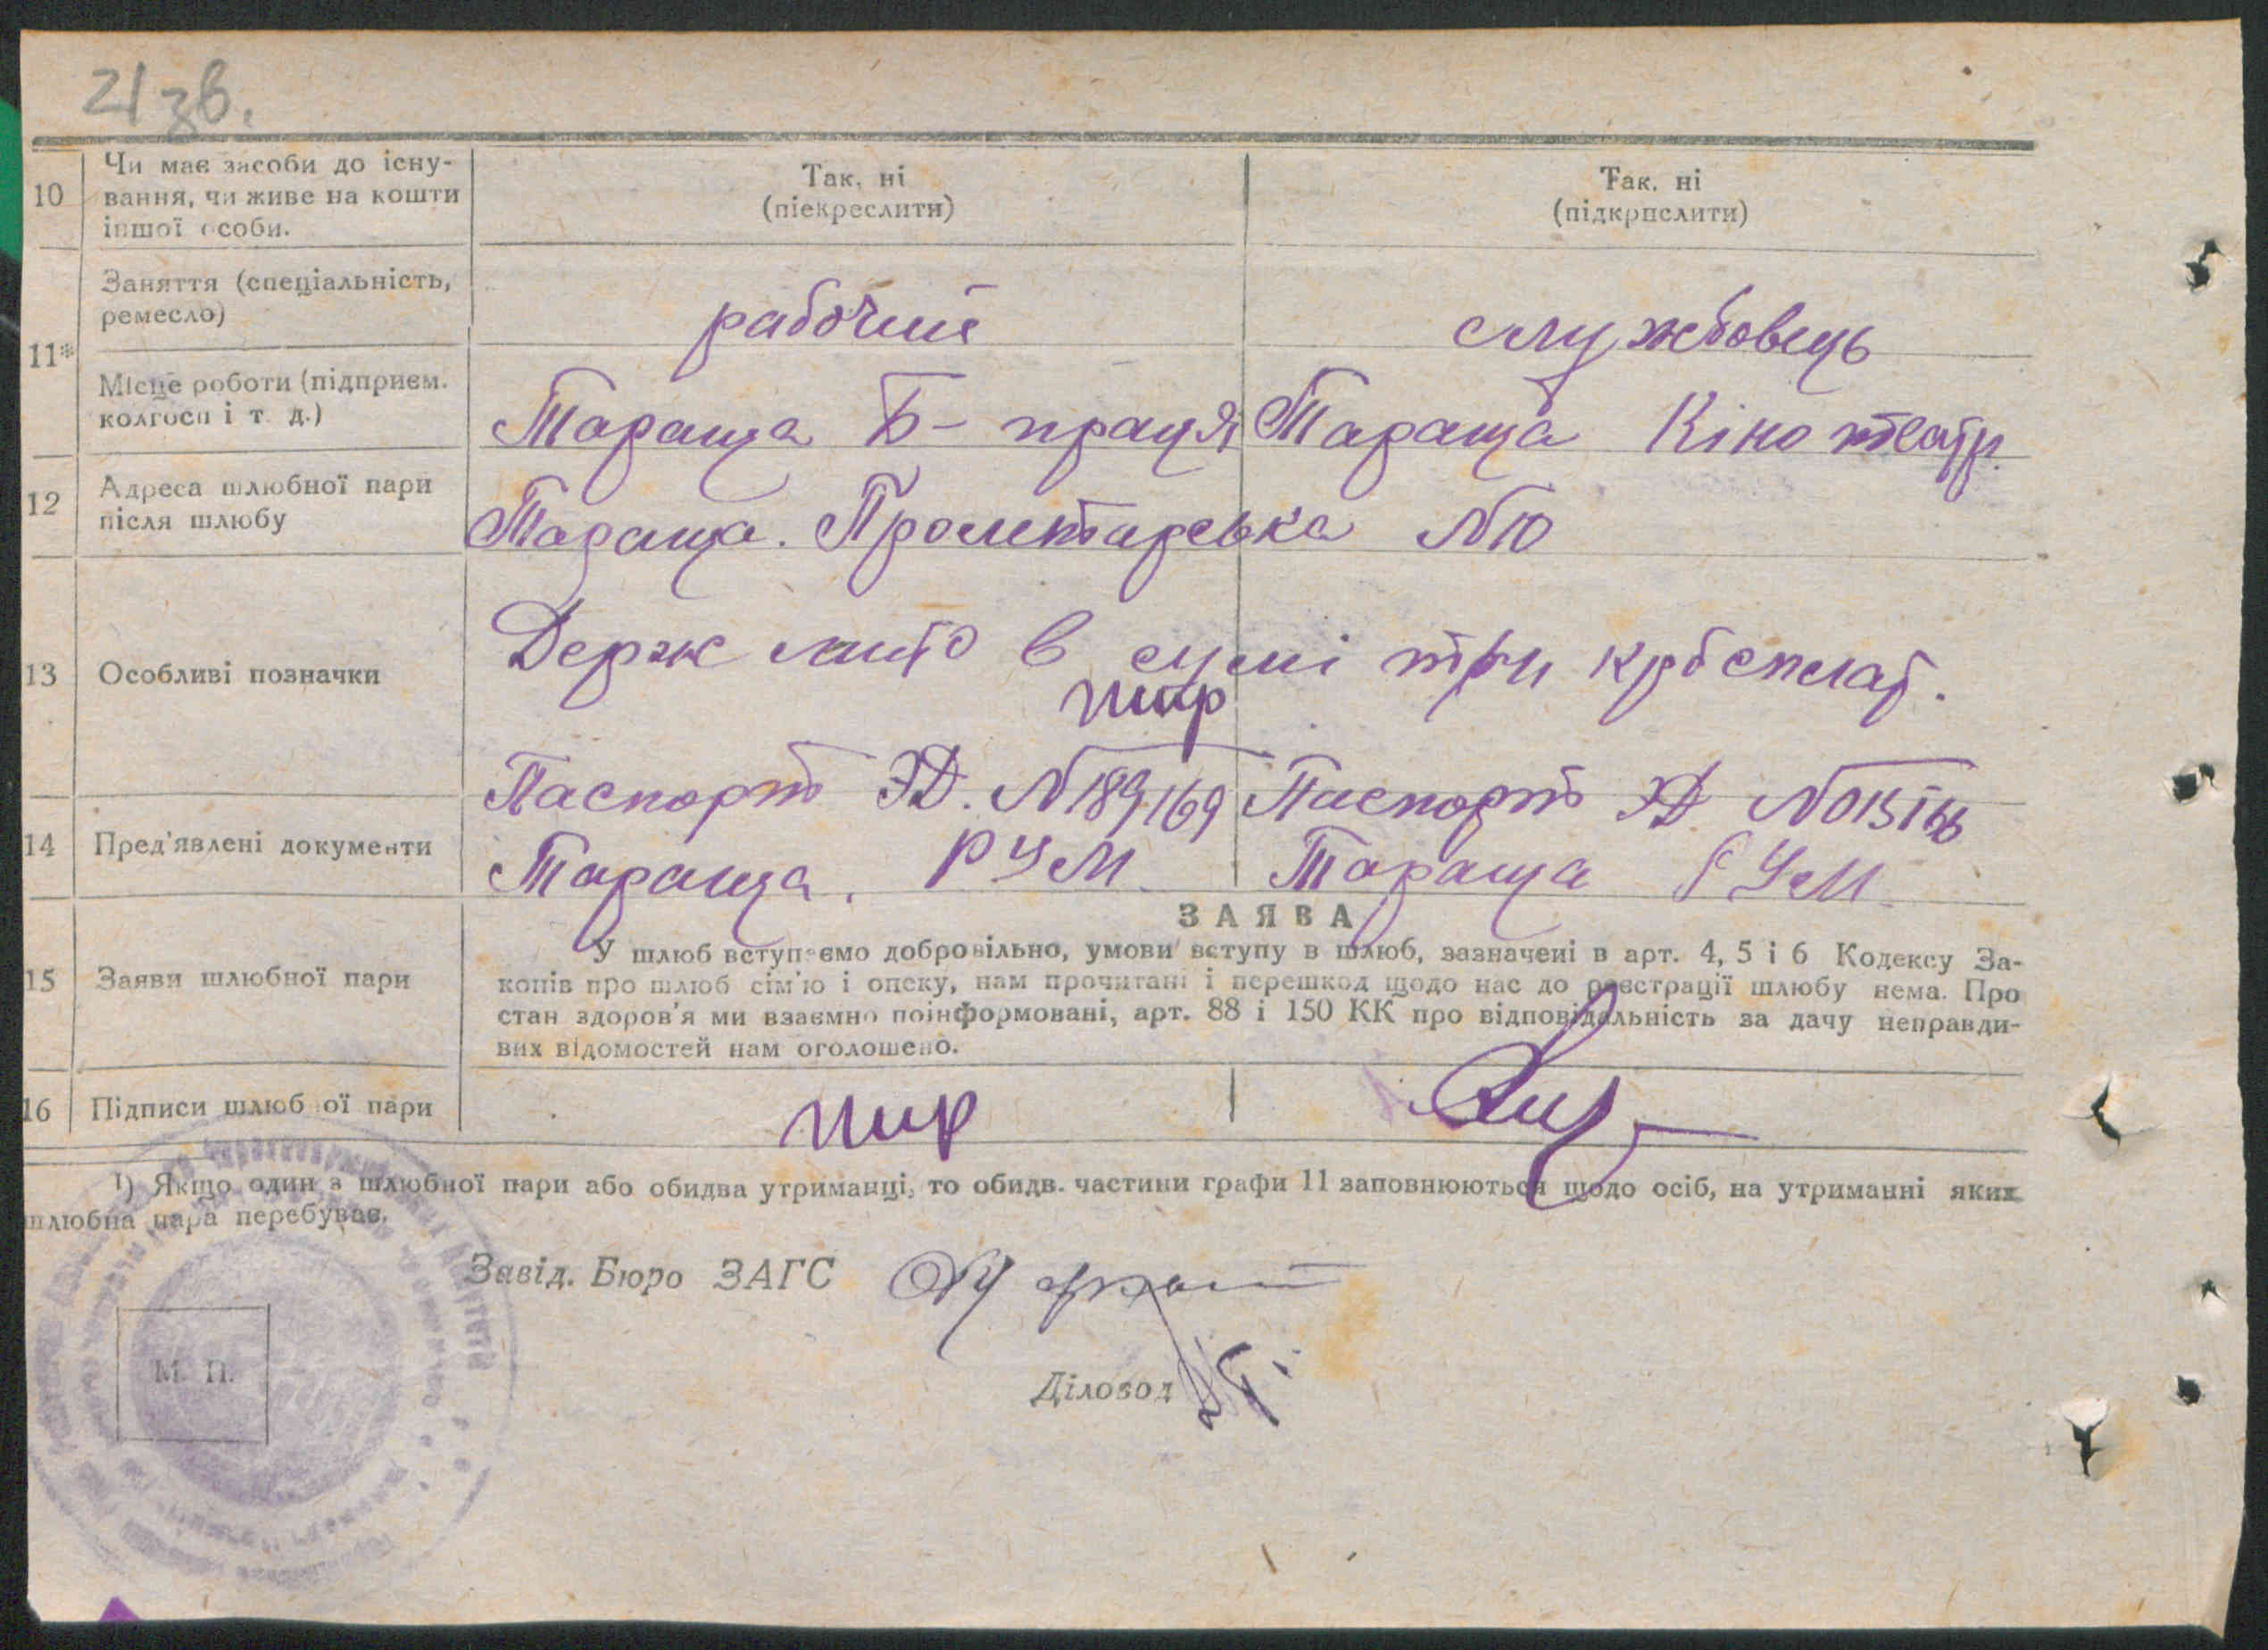 21 зв.
10 Чи має засоби до існу-
вання, чи живе на кошти
іншої особи.
Так, ні
(піекреслити)
Так, ні
(підкрпслити)
11* Заняття (спеціальність,
ремесло)
рабочий
службовець
Місце роботи (підприєм.
колгосп і т. д.)
Тараща Б- праця
Тараща Кіно театр.
12 Адреса шлюбної пари
після шлюбу
Тараща. Пролетарська №10
13 Особливі позначки
Держ мито в сумі три крб сплач.
пир
14 Пред'явлені документи
Паспорт ЭД. №189169
Тараща. РУМ
Паспорт ЭД №
Тараща РУМ
15 Заяви шлюбної пари
ЗАЯВА
У шлюб вступаємо добровільно, умови вступу в шлюб, зазначені в арт. 4, 5 і 6 Кодексу За-
конів про шлюб сім'ю і опеку, нам прочитані і перешкод щодо нас до реєстрації шлюбу нема. Про
стан здоров'я ми взаємно поінформовані, арт. 88 і 150 КК про відповідальність за дачу неправди-
вих відомостей нам оголошено.
16 Підписи шлюб ої пари
пир
¹) Якщо один з шлюбної пари або обидва утриманці, то обидв. частини графи 11 заповнюються щодо осіб, на утриманні яких
шлюбна пара перебуває.
Завід. Бюро ЗАГС
Діловод
М. П.